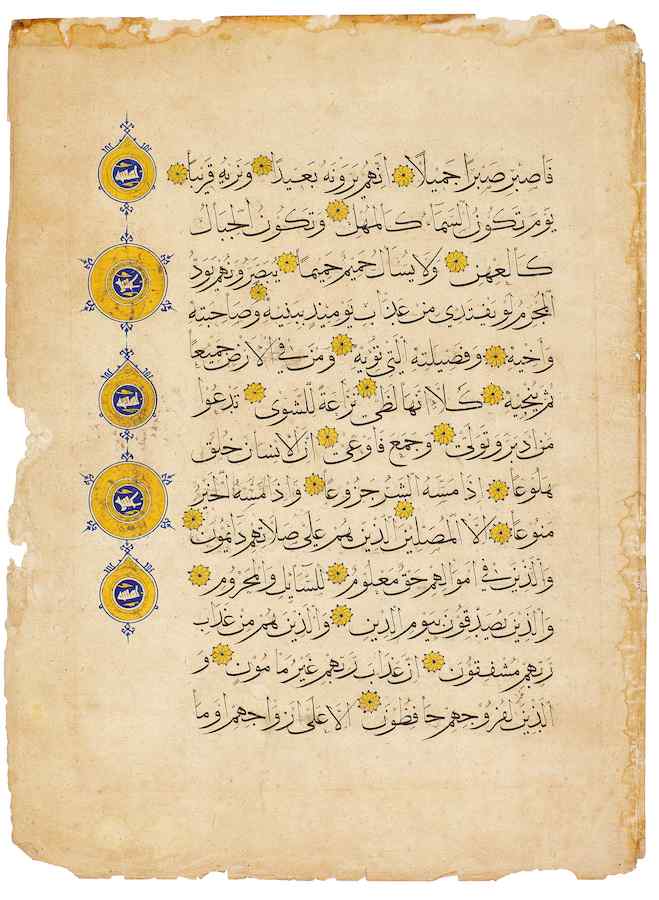 فاصبر صبرًا جميلًا انهم يرونه بعيدًا ونريه قريبًا
يوم تكون السماء كالمهل وتكون الجبال
كالعهن ولا يسأل حميم حميما يبصرونهم يود
المجرم لو يفتدي من عذاب يومئذ ببنيه وصاحبته
واخيه وفصيلته التي تؤيه ومن في الارض جميعا
ثم ينجيه كلا انها لظى نزاعة للشوى تدعوا
من ادبر وتولى وجمع فاوعى ان الانسان خلق
هلوعا اذا مسه الشر جزوعا واذا مسه الخير
منوعا الا المصلين الذين هم على صلاتهم دائمون
والذين في اموالهم حق معلوم للسائل والمحروم
والذين يصدقون بيوم الدين والذين هم من عذاب
ربهم مشفقون ان عذاب ربهم غير مامون و
الذين لفروجهم حافظون الا على ازواجهم وما